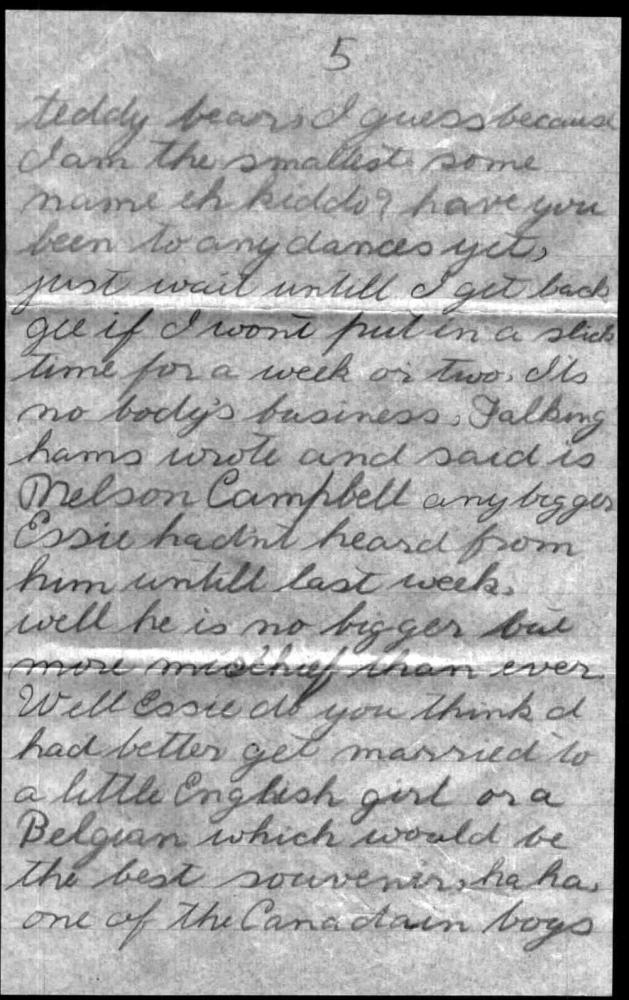 5
teddy bears, I guess because
I am the smallest some
name eh kiddo? have you
been to any dances yet,
just wait untill I get back
gee if I wont put in a slick
time for a week or two, Its
no body's business, Falking
hams wrote and said is
Melson Campbell any bigger
Essie hadnt heard from
him untill last week.
well he is no bigger but
more mischief than ever
Well Essie do you think I
had better get married to
a little English girl or a
Belgian which would be
the best souvenir, ha ha,
one of the Canadain boys